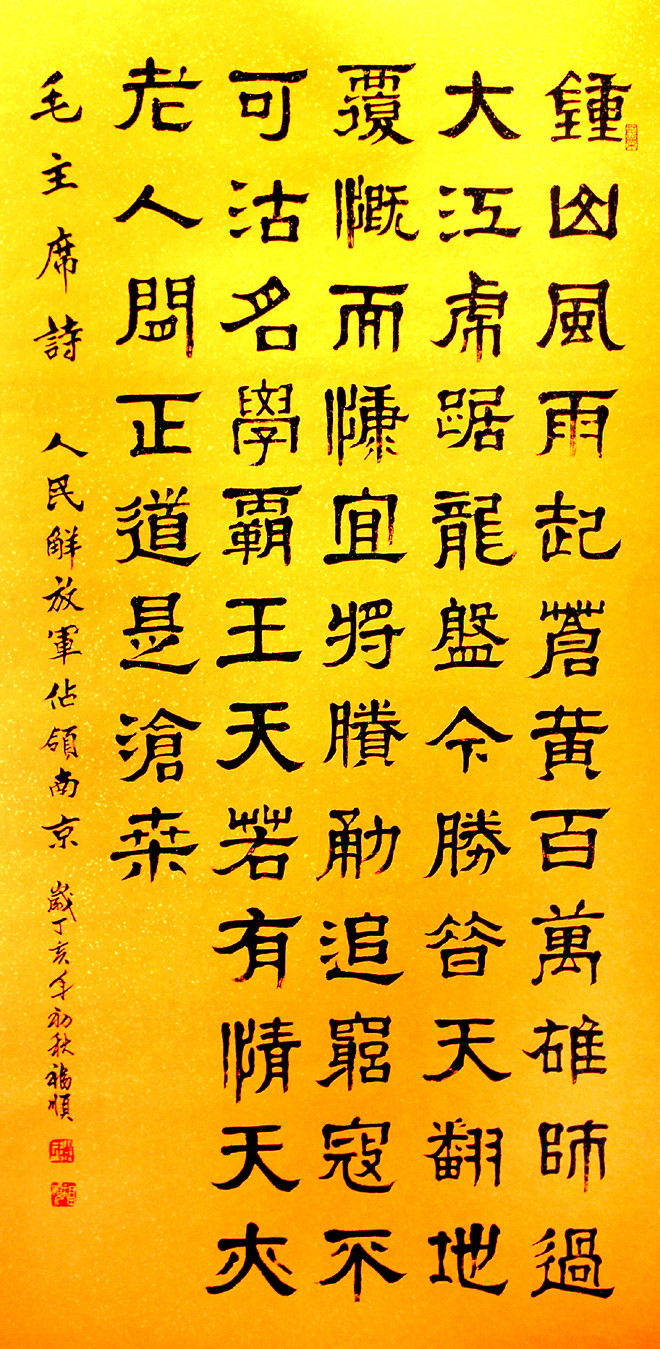 鍾山風雨起蒼黃百萬雄師過
大江虎踞龍盤今勝昔天翻地
覆慨而慷宜將賸勇追窮寇不
可沽名學霸王天若有情天亦
老人間正道是滄桑
毛主席詩 人民解放軍佔領南京 歲丁亥年初秋福順